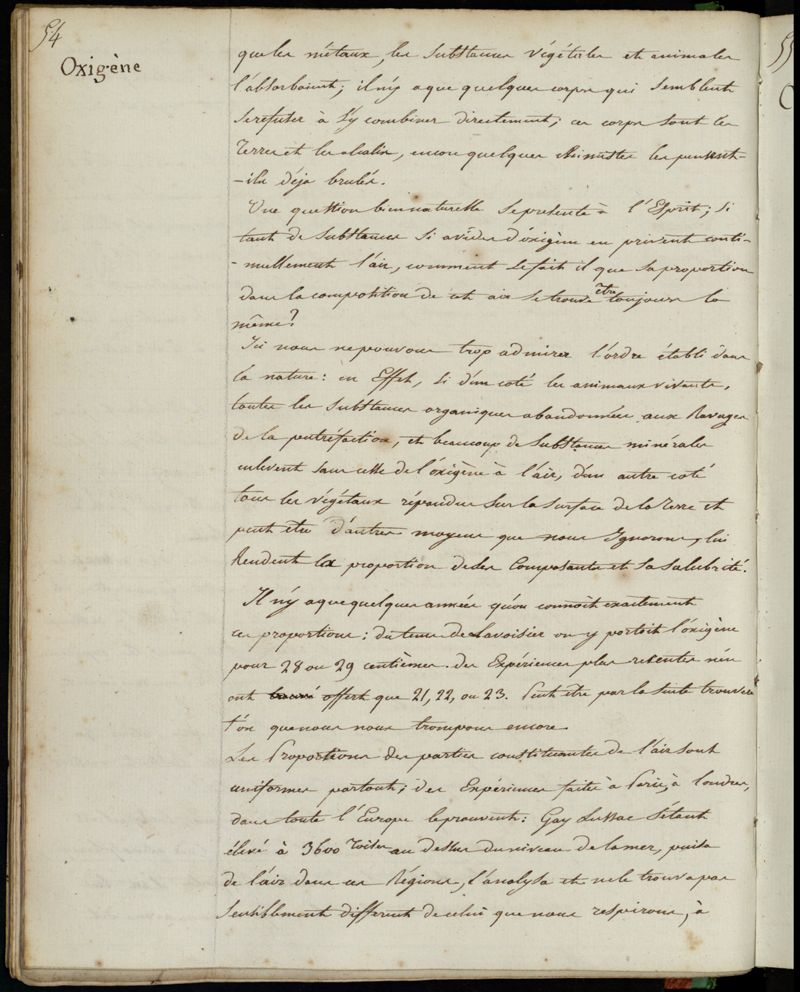 54
Oxigène
que les métaux, les substances végétales et animales
l'absorbaient; il n'y a que quelques corps qui semblent
se refuser à s'y combiner directement; ces corps sont les
Terres et les alcalis, encore quelques chimistes les pensent-
-ils déja brulés.
Une question bien naturelle se presente à l'Esprit; si
tant de substances si avides d'oxigène en privent conti-
-nuellement l'air, comment se fait il que sa proportion
dans la composition de cet air se trouve être toujours la
même?
Ici nous ne pouvons trop admirer l'ordre établi dans
la nature: en Effet, si d'un coté les animaux vivants,
toutes les substances organiques abandonnées aux Ravages
de la putréfaction, et beaucoup de substances minérales
enlevent sans cesse de l'oxigène à l'air, d'un autre coté
tous les végétaux répandus sur la surface de la terre et
peut etre d'autres moyens que nous Ignorons, lui
Rendent la proportion de ses Composants et sa salubrité.
Il n'y a que quelques années qu'on connoit exactement
ces proportions: du tems de Lavoisier on y portoit l'oxigène
pour 28 ou 29 centièmes. des Expériences plus recentes n'en
ont offert que 21, 22, ou 23. Peut être par la suite trouvera
t'on que nous nous trompons encore.
Les Proportions des parties constituantes de l'air sont
uniformes partout; des Expériences faites à Paris, à Londres,
dans toute l'Europe le prouvent: Gay Lussac s'étant
élevé à 3600 Toises au dessus du niveau de la mer, puisa
de l'air dans ces Régions, l'analysa et ne le trouva pas
sensiblement different de celui que nous respirons; à
55